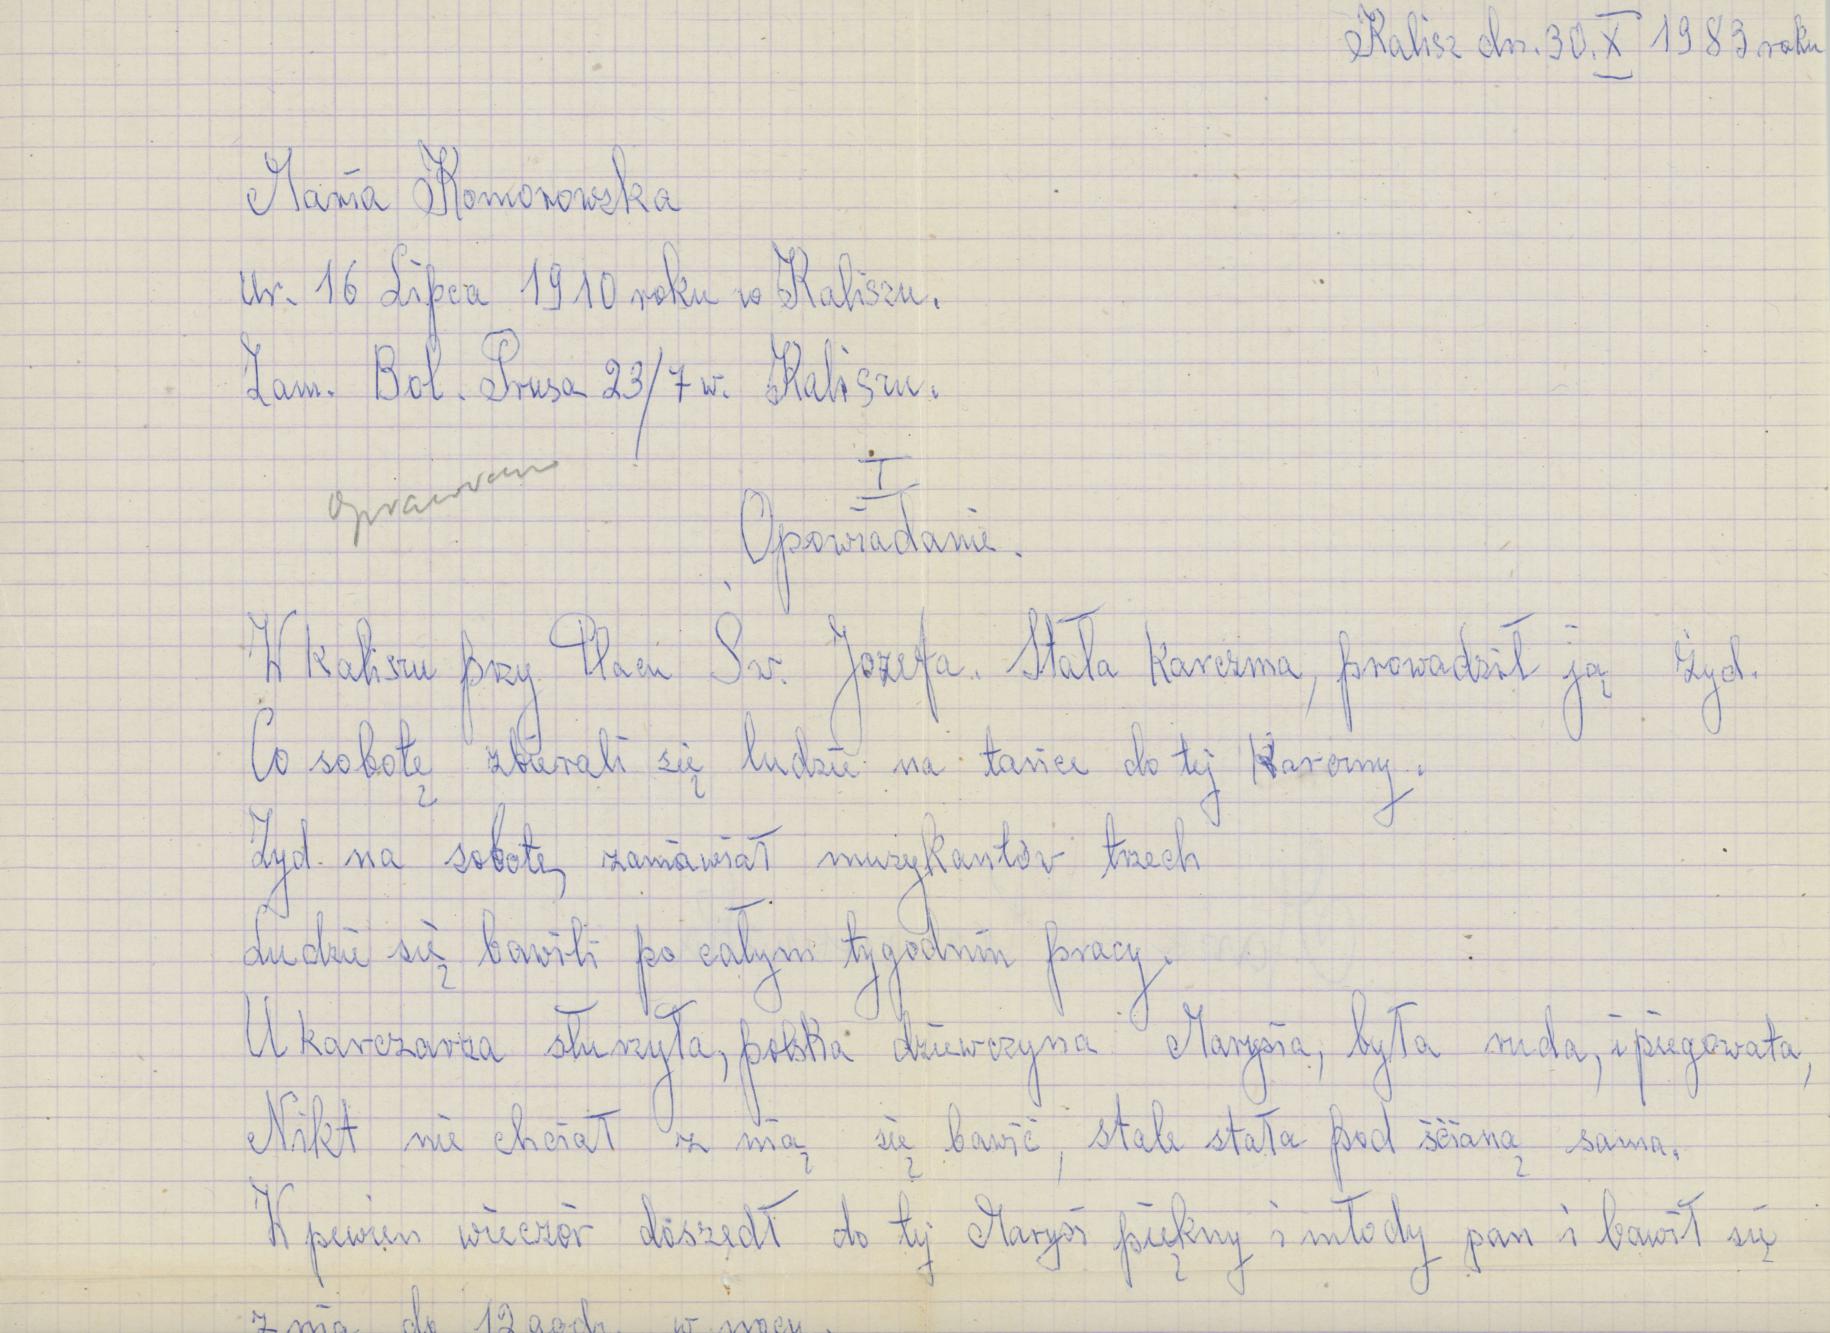 Kalisz dn. 30. X 1983 roku
Maria Komorowska
ur. 16 Lipca 1910 roku w Kaliszu.
Zam. Bol. Prusa 23/7 w. Kaliszu.
I
Opowiadanie.
W Kaliszu przy Placu Św. Jozefa. Stała karczma, prowadził ją żyd.
Co sobotę zbierali się ludzie na tańce do tej Karczmy.
Żyd. na sobotę, zamawiał muzykantów trzech
Ludzie się bawili po całym tygodniu pracy.
U karczarza służyła, polska dziewczyna Marysia, była ruda, i piegowata,
Nikt nie chciał z nią się bawić, stale stała pod ścianą sama.
W pewien wieczór doszedł do tej Marysi piękny i młody pan i bawił się
z nią do 12 godz. w nocy.